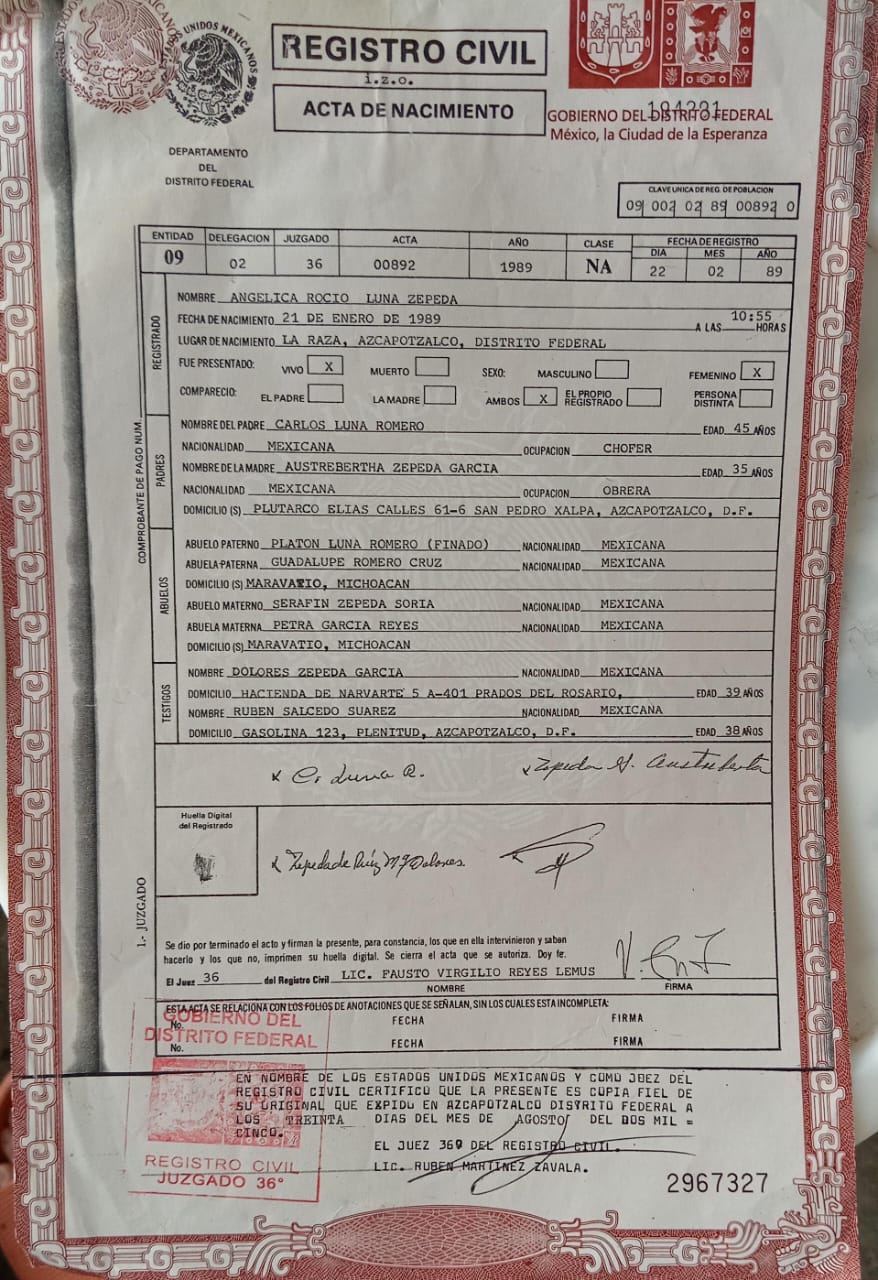 ESTADOS UNIDOS MEXICANOS
REGISTRO CIVIL
i.z.o.
ACTA DE NACIMIENTO
194331
GOBIERNO DEL DISTRITO FEDERAL
México, la Ciudad de la Esperanza
DEPARTAMENTO
DEL
DISTRITO FEDERAL
CLAVE UNICA DE REG. DE POBLACION
09 002 02 89 00892 0
ENTIDAD DELEGACION JUZGADO ACTA AÑO CLASE FECHA DE REGISTRO
DIA MES AÑO
09 02 36 00892 1989 NA 22 02 89
REGISTRADO
NOMBRE ANGELICA ROCIO LUNA ZEPEDA
FECHA DE NACIMIENTO 21 DE ENERO DE 1989 A LAS 10:55 HORAS
LUGAR DE NACIMIENTO LA RAZA, AZCAPOTZALCO, DISTRITO FEDERAL
FUE PRESENTADO: VIVO X MUERTO SEXO: MASCULINO FEMENINO X
COMPARECIO: EL PADRE LA MADRE AMBOS X EL PROPIO REGISTRADO PERSONA DISTINTA
PADRES
NOMBRE DEL PADRE CARLOS LUNA ROMERO EDAD 45 AÑOS
NACIONALIDAD MEXICANA OCUPACION CHOFER
NOMBRE DE LA MADRE AUSTREBERTHA ZEPEDA GARCIA EDAD 35 AÑOS
NACIONALIDAD MEXICANA OCUPACION OBRERA
DOMICILIO (S) PLUTARCO ELIAS CALLES 61-6 SAN PEDRO XALPA, AZCAPOTZALCO, D.F.
ABUELOS
ABUELO PATERNO PLATON LUNA ROMERO (FINADO) NACIONALIDAD MEXICANA
ABUELA PATERNA GUADALUPE ROMERO CRUZ NACIONALIDAD MEXICANA
DOMICILIO (S) MARAVATIO, MICHOACAN
ABUELO MATERNO SERAFIN ZEPEDA SORIA NACIONALIDAD MEXICANA
ABUELA MATERNA PETRA GARCIA REYES NACIONALIDAD MEXICANA
DOMICILIO (S) MARAVATIO, MICHOACAN
TESTIGOS
NOMBRE DOLORES ZEPEDA GARCIA NACIONALIDAD MEXICANA
DOMICILIO HACIENDA DE NARVARTE 5 A-401 PRADOS DEL ROSARIO, EDAD 39 AÑOS
NOMBRE RUBEN SALCEDO SUAREZ NACIONALIDAD MEXICANA
DOMICILIO GASOLINA 123, PLENITUD, AZCAPOTZALCO, D.F. EDAD 38 AÑOS
COMPROBANTE DE PAGO NUM.
1.- JUZGADO
C. Luna R. Zepeda G. Austreberta
Huella Digital
del Registrado
Zepeda de Ruíz Mª Dolores.
Se dio por terminado el acto y firman la presente, para constancia, los que en ella intervinieron y saben
hacerlo y los que no, imprimen su huella digital. Se cierra el acta que se autoriza. Doy fe.
El Juez 36 del Registro Civil LIC. FAUSTO VIRGILIO REYES LEMUS
NOMBRE FIRMA
ESTA ACTA SE RELACIONA CON LOS FOLIOS DE ANOTACIONES QUE SE SEÑALAN, SIN LOS CUALES ESTA INCOMPLETA:
No. FECHA FIRMA
No. FECHA FIRMA
GOBIERNO DEL
DISTRITO FEDERAL
EN NOMBRE DE LOS ESTADOS UNIDOS MEXICANOS Y COMO JUEZ DEL
REGISTRO CIVIL CERTIFICO QUE LA PRESENTE ES COPIA FIEL DE
SU ORIGINAL QUE EXPIDO EN AZCAPOTZALCO DISTRITO FEDERAL A
LOS TREINTA DIAS DEL MES DE AGOSTO DEL DOS MIL =
CINCO.
EL JUEZ 36º DEL REGISTRO CIVIL.
LIC. RUBEN MARTINEZ ZAVALA.
REGISTRO CIVIL
JUZGADO 36°
2967327